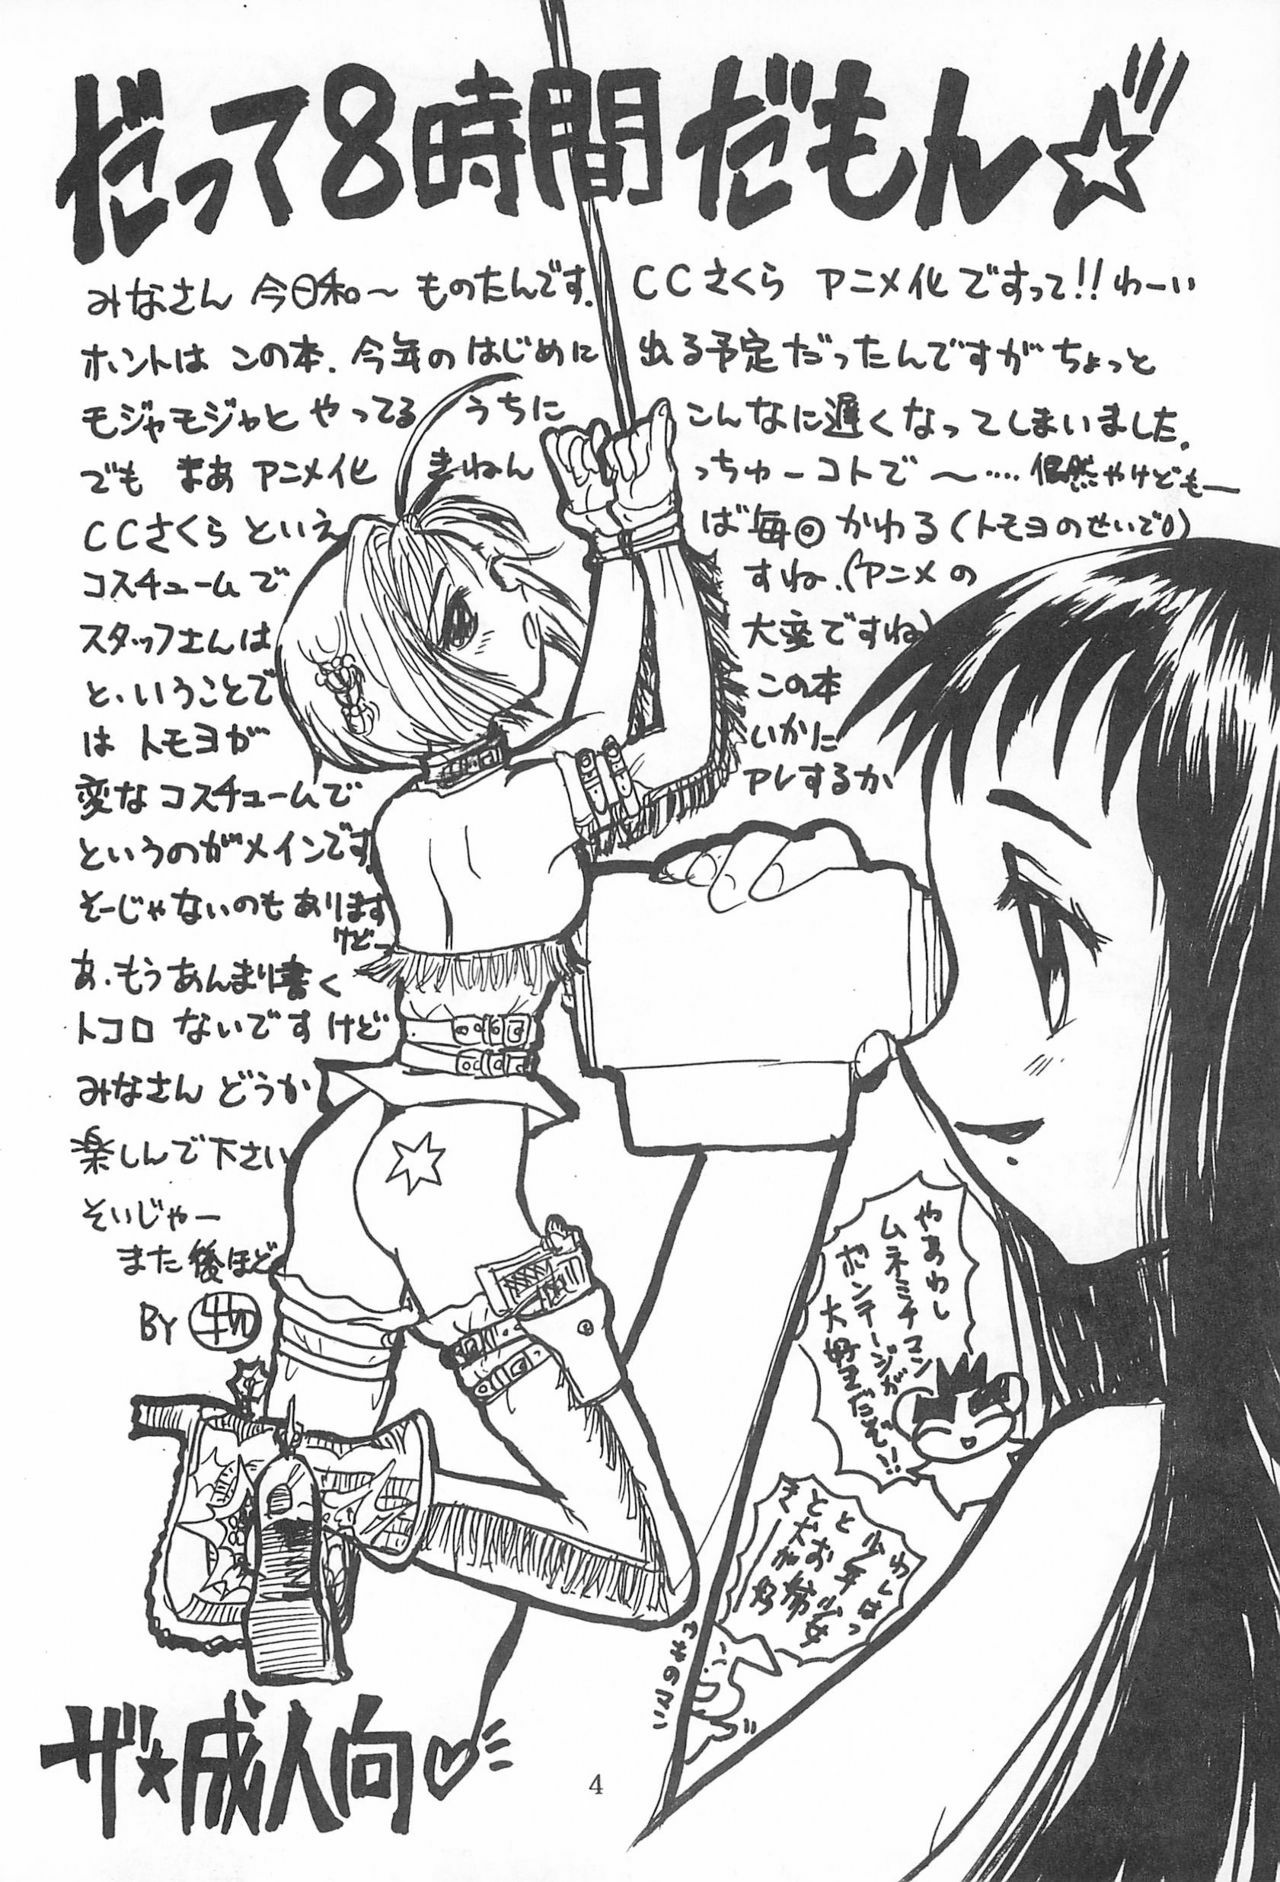 だって8時間だもん☆
みなさん 今日和〜 ものたんです. CCさくら アニメ化ですって!! わーい
ホントは この本. 今年のはじめに 出る予定だったんですがちょっと
モジャモジャと やってる うちに こんなに遅くなってしまいました.
でも まあ アニメ化 きねん っちゅーコトで 〜‥‥ 偶然やけどもー
CCさくら といえ ば毎回 かわる(トモヨのせいで)
コスチュームで すね.(アニメの
スタッフさんは 大変ですね)
と、いうことで この本
は トモヨが いかに
変な コスチュームで アレするか
というのがメインです
そーじゃないのもあります
けどー
あ.もうあんまり書く
トコロ ないですけど
みなさん どうか
楽しんで下さい
そいじゃー
また後ほど
BY
やあわし
ムネミチコン
ボンテージが
大好きだぞ!!
わしは
少年少女
とお
ザ★成人向♡
4